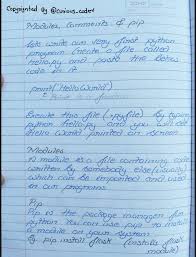 Copyrighted By @curious_coder
Modules, Comments & pip
Lets write our very first python
program. Create a file called
hello.py and paste the below
code in it
print("Hello World")
Execute this file (.py file) by typing
python hello.py and you will see
Hello World printed on screen
Modules
A module is a file containing code
written by somebody else (usually)
which can be imported and used in
our programs
Pip
Pip is the package manager for
python You can use pip to install
a module on your system
pip install flask (installs flask
module)